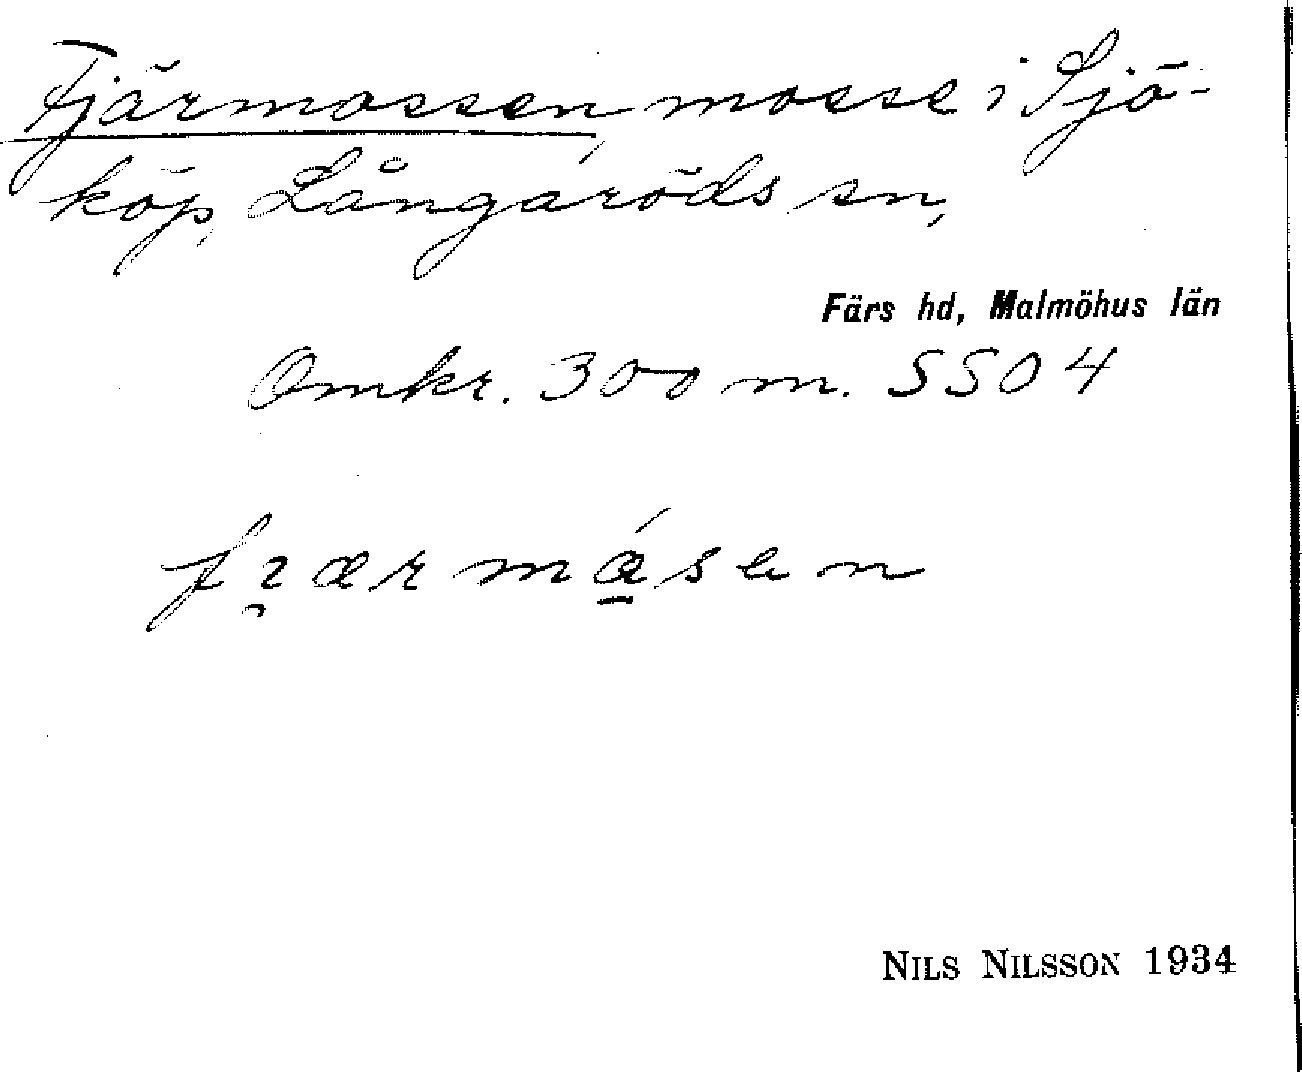 Fjärmossen, mosse i Sjö-
köp, Långaröds sn,
Färs hd, Malmöhus län
Omkr. 300 m. SSO 4
NILS NILSSON 1934